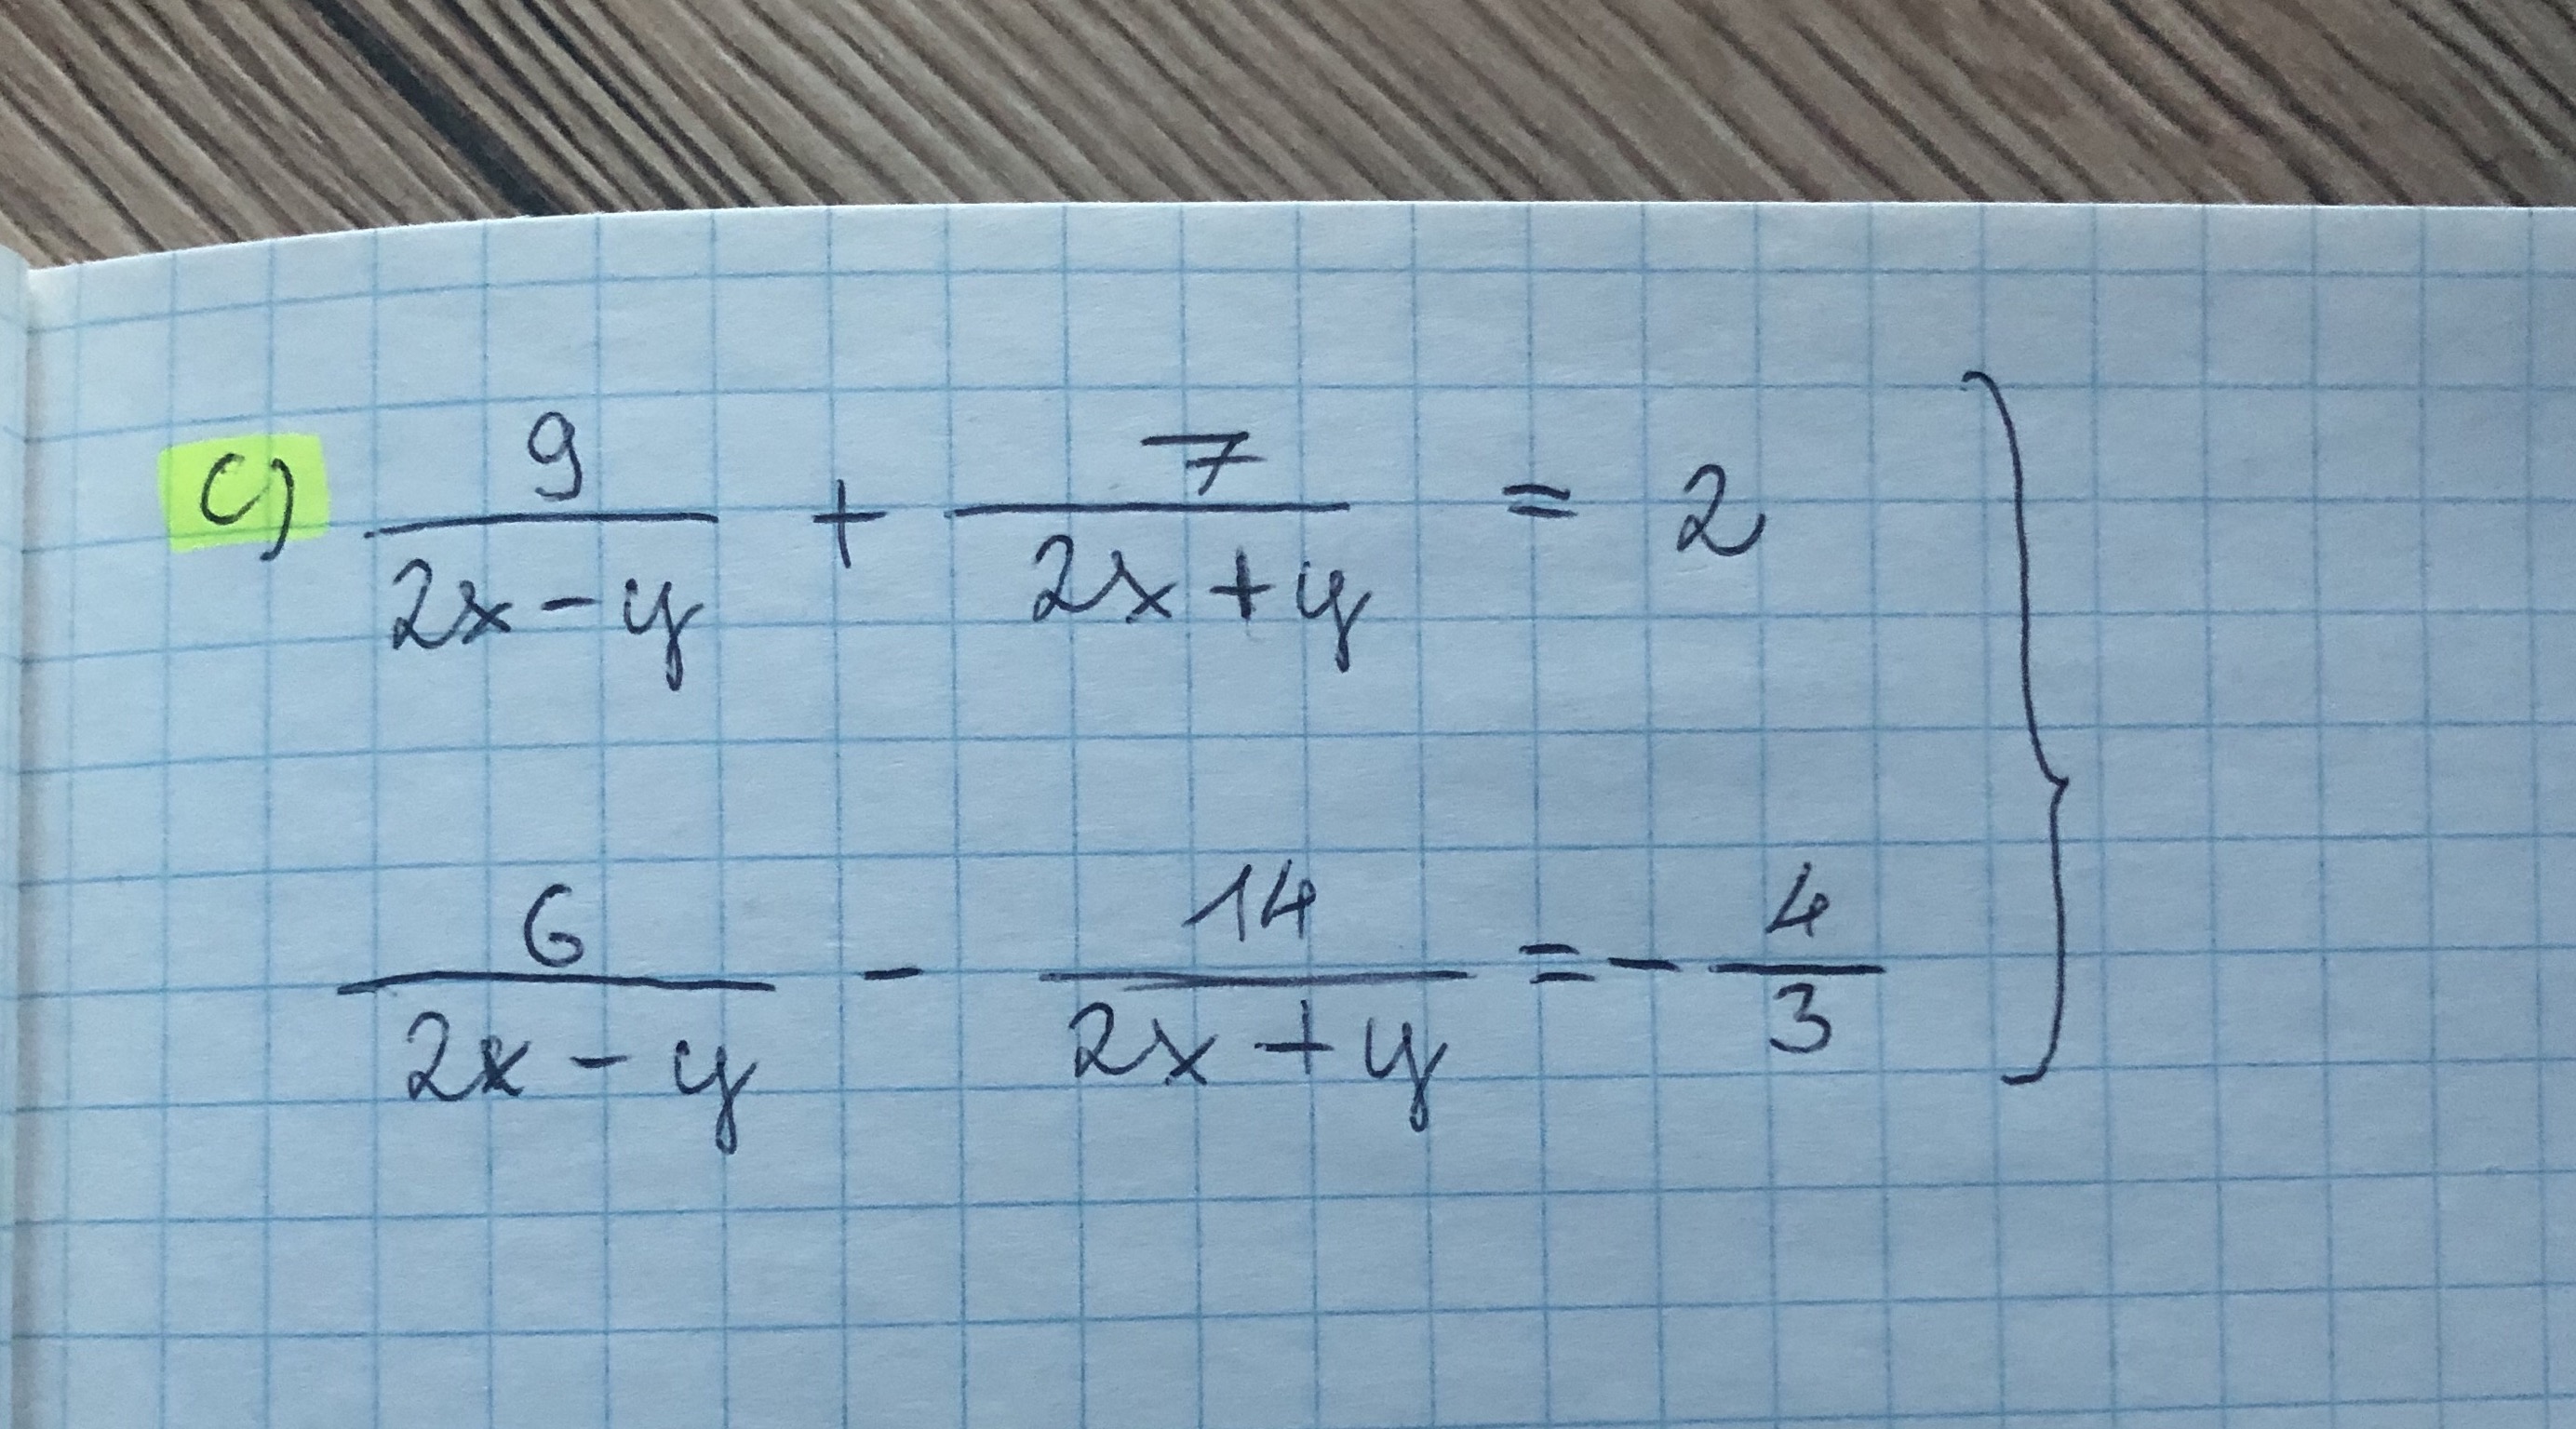 c) 9/(2x-y) + 7/(2x+y) = 2
6/(2x-y) - 14/(2x+y) = -4/3